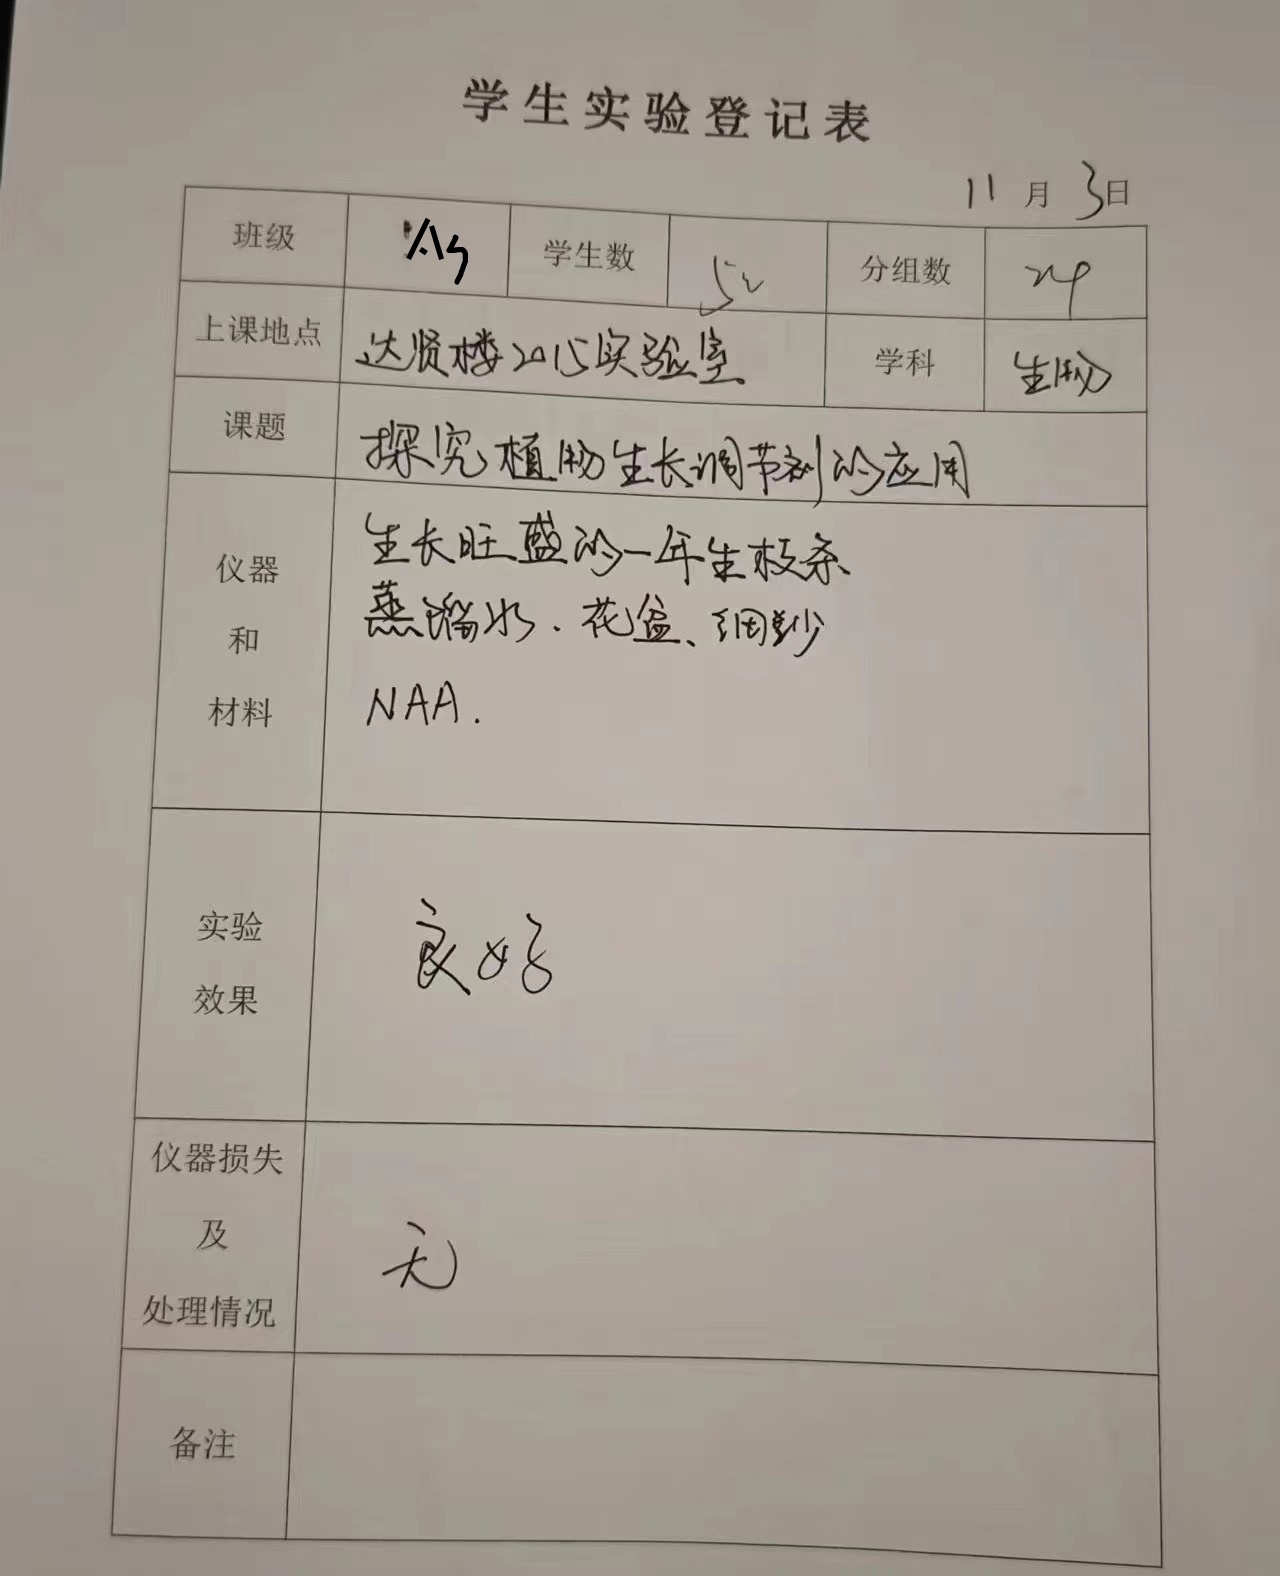 学生实验登记表
11月3日
班级 A5 学生数 52 分组数 24
上课地点 达贤楼2015实验室 学科 生物
课题 探究植物生长调节剂的应用
仪器和材料
生长旺盛的一年生枝条
蒸馏水.花盆、细沙
NAA.
实验效果 良好
仪器损失及处理情况 无
备注